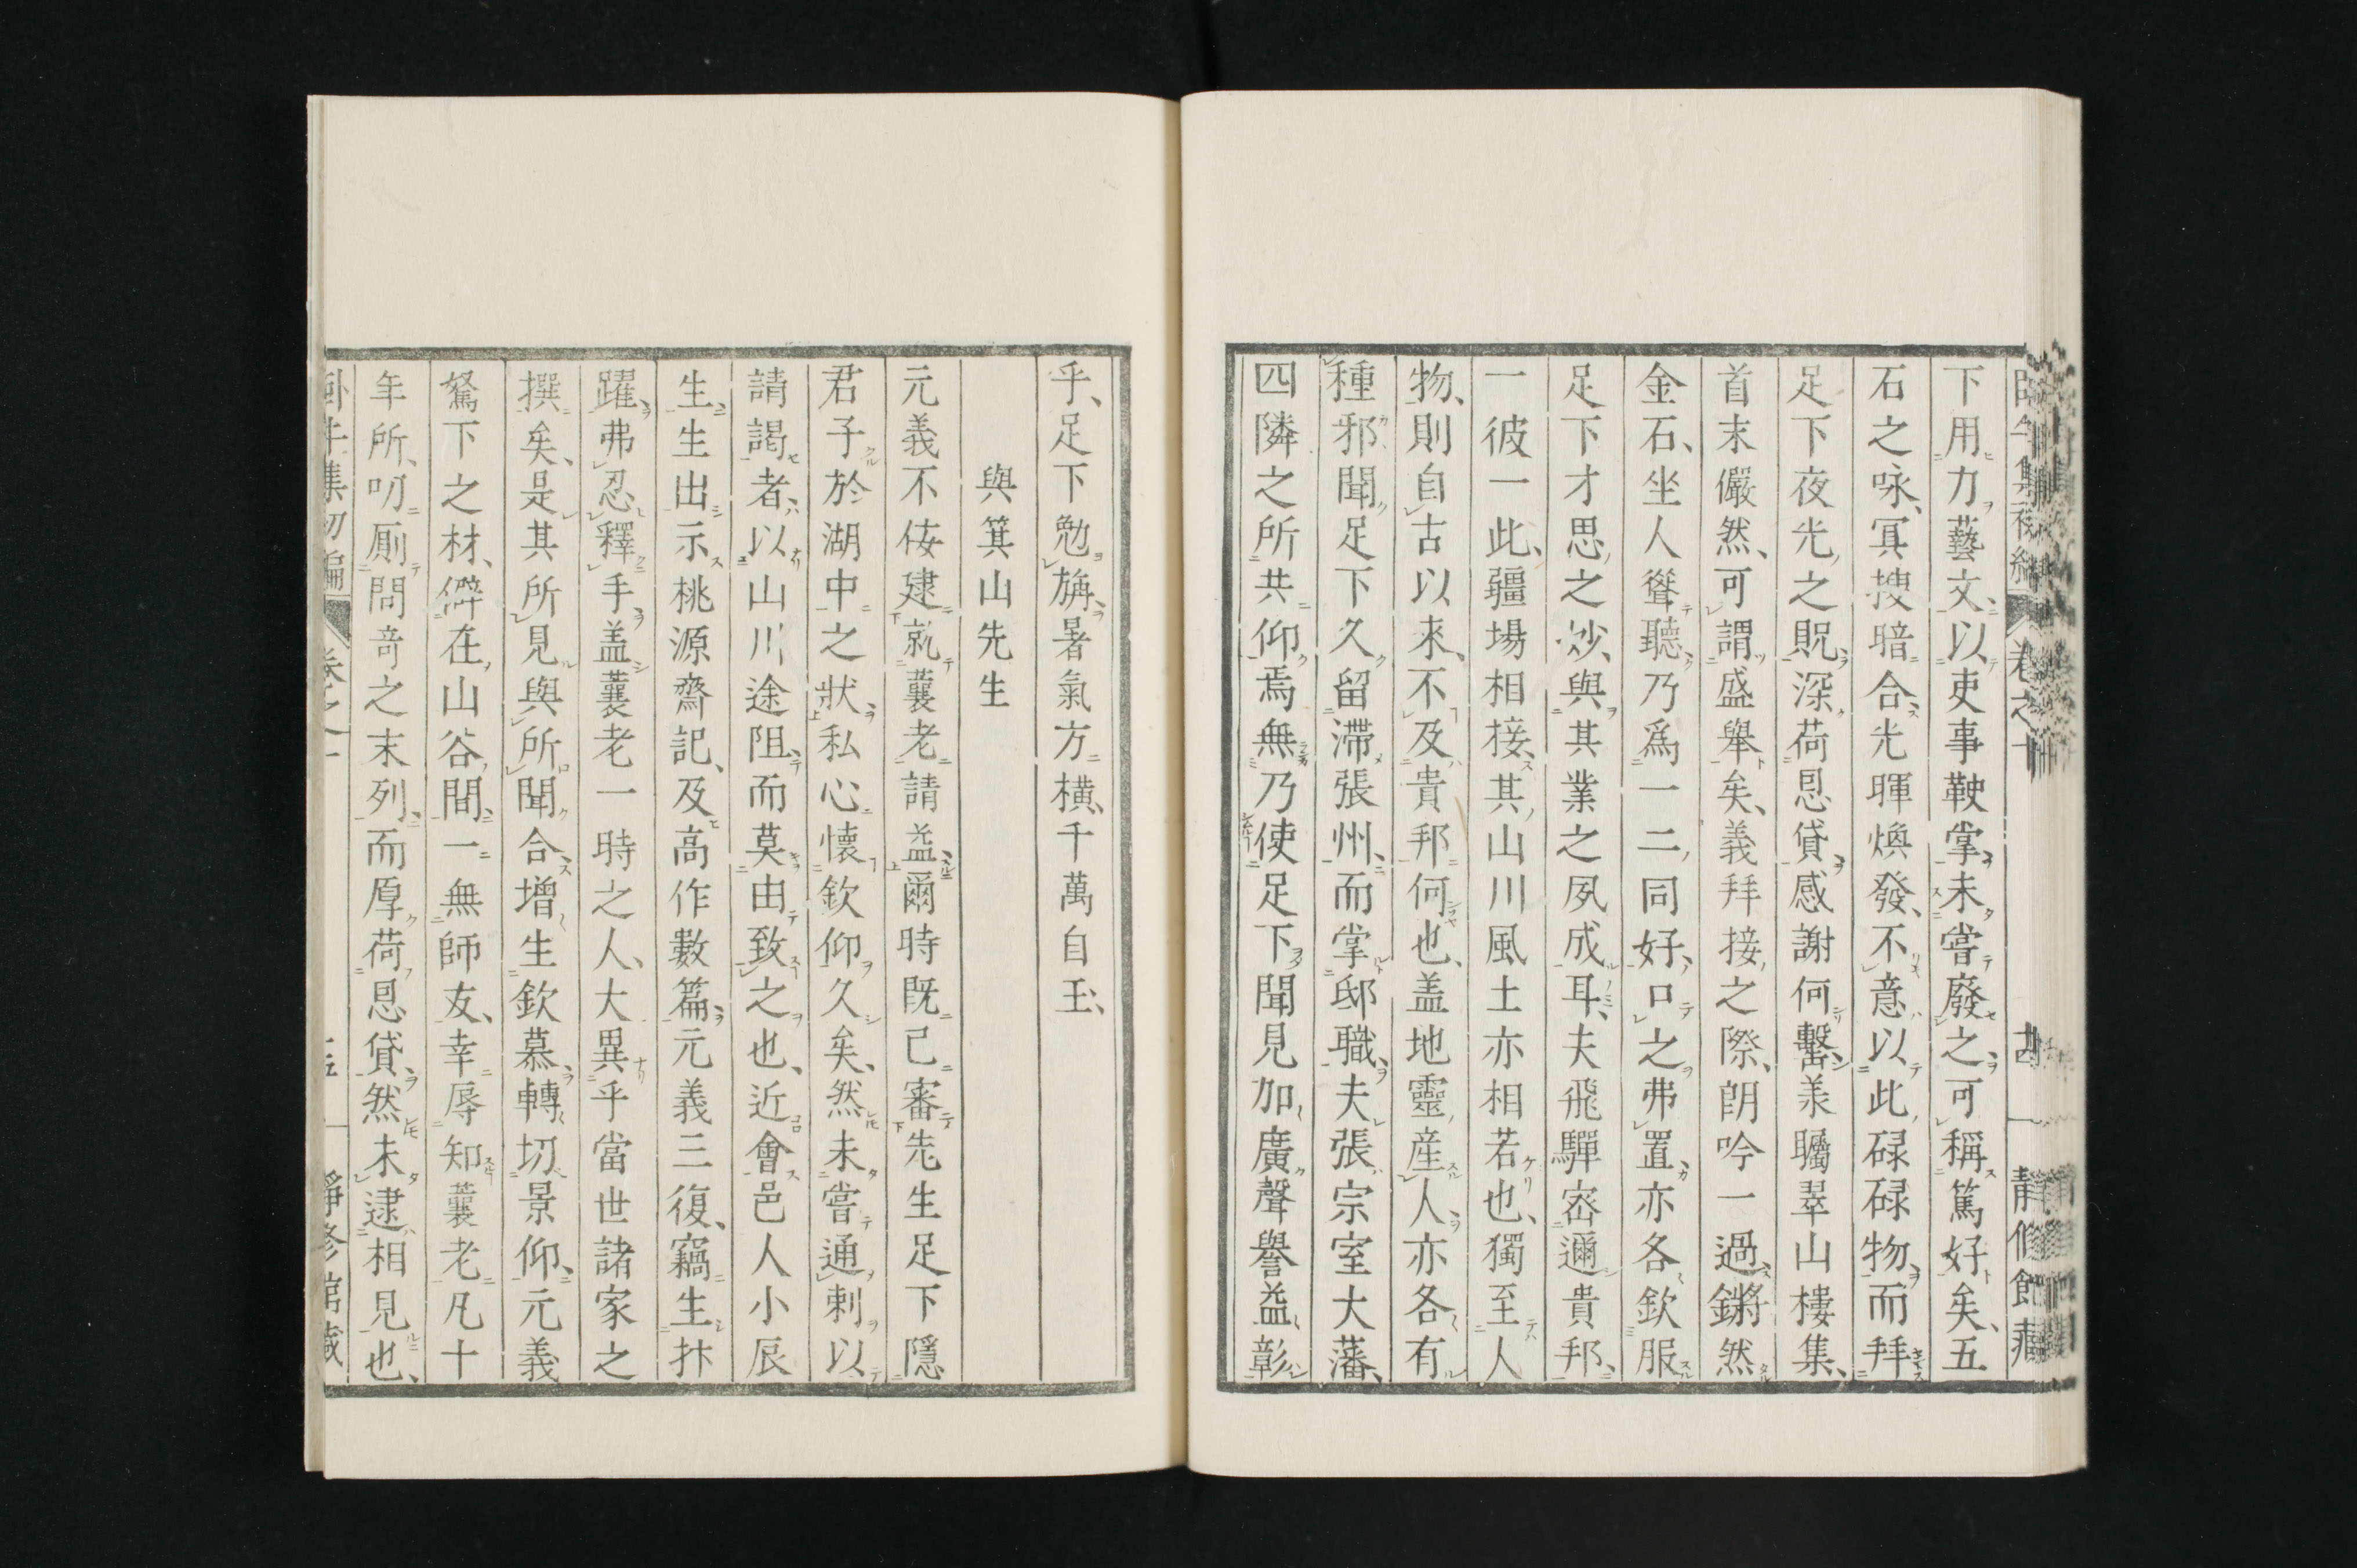 下用力藝文、以吏事鞅掌、未嘗廢之、可稱篤好矣、五
石之咏、冥搜暗合、光暉煥發、不意以此碌碌物、而拜
足下夜光之貺、深荷恩貸、感謝何罄、羕矚翠山樓集、
首末儼然、可謂盛舉矣、義拜接之際、朗吟一過、鏘然
金石、坐人聳聽、乃爲一二同好、口之弗置、亦各欽服
足下才思之妙、與其業之夙成耳、夫飛驒密邇貴邦、
一彼一此、疆場相接、其山川風土亦相若也、獨至人
物、則自古以來、不及貴邦何也、盖地靈産人、亦各有
種邪、聞足下久留滯張州、而掌邸職、夫張宗室大藩、
四隣之所共仰焉、無乃使足下聞見加廣、聲譽益彰
乎、足下勉旃、暑氣方橫、千萬自玉、
與箕山先生
元義不佞建就蘘老請益、爾時既已審先生足下隱
君子於湖中之狀、私心懷欽仰久矣、然未嘗通刺以
請謁者、以山川途阻、而莫由致之也、近會邑人小辰
生、生出示桃源齋記、及高作數篇、元義三復、竊生抃
躍、弗忍釋手、盖蘘老一時之人、大異乎當世諸家之
撰矣、是其所見與所聞合、增生欽慕、轉切景仰、元義
駑下之材、僻在山谷間、一無師友、幸辱知蘘老凡十
年所、叨厠問奇之末列、而厚荷恩貸、然未逮相見也、